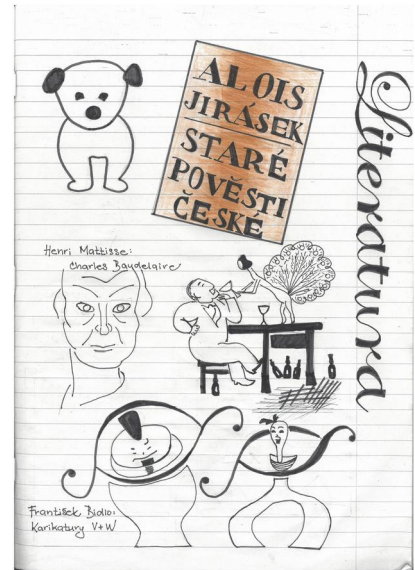 ALOIS
JIRÁSEK
STARÉ
POVĚSTI
ČESKÉ
Literatura
Henri Mattisse:
Charles Baudelaire
František Bidlo:
Karikatury V+W